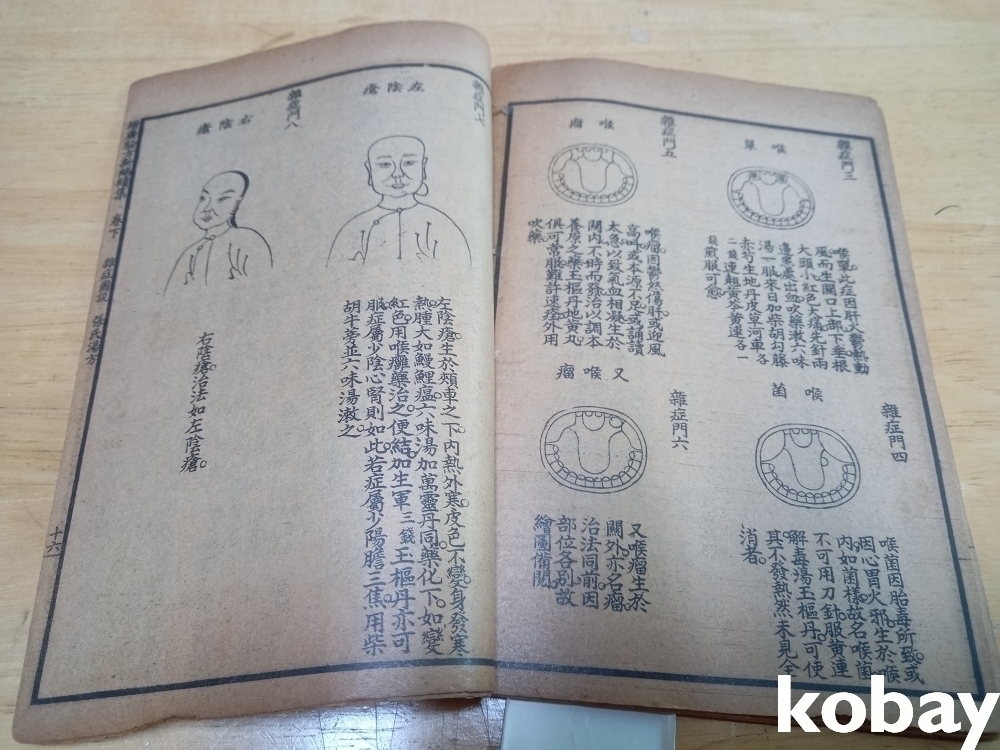 雜症門三
喉單
喉單此症因肝火鬱熱動
風而生關口上部下垂根
大頭小紅色大痛先針兩
邊患處出血吹藥漱六味
湯一服來日加柴胡勾藤
赤芍生地丹皮草河車各
二錢連翹黃芩黃連各一
錢煎服可愈
雜症門四
喉菌
喉菌因胎毒所致或
因心胃火邪生於喉
內如菌樣故名喉菌
不可用刀針服黃連
解毒湯玉樞丹可使
其不發熱然未見全
消者
雜症門五
喉瘤
喉瘤因鬱怒傷肝或迎風
高呌或本源不足或誦讀
太急以致氣血相凝生於
關內不時而發治以調本
養原之藥玉樞丹地黃丸
俱可常服難許速痊外用
吹藥
雜症門六
又喉瘤
又喉瘤生於
關外亦名瘤
治法同前因
部位各別故
繪圖備閱
雜症門七
左陰瘡
左陰瘡生於頰車之下內熱外寒皮色不變身發寒
熱腫大如鰻鯉瘟六味湯加萬靈丹同藥化下如變
紅色用喉癰藥治之便結加生軍三錢玉樞丹亦可
服症屬少陰心腎則如此若症屬少陽膽三焦用柴
胡牛蒡並六味湯漱之
雜症門八
右陰瘡
右陰瘡治法如左陰瘡
卷下
雜症圖說
十六
kobay